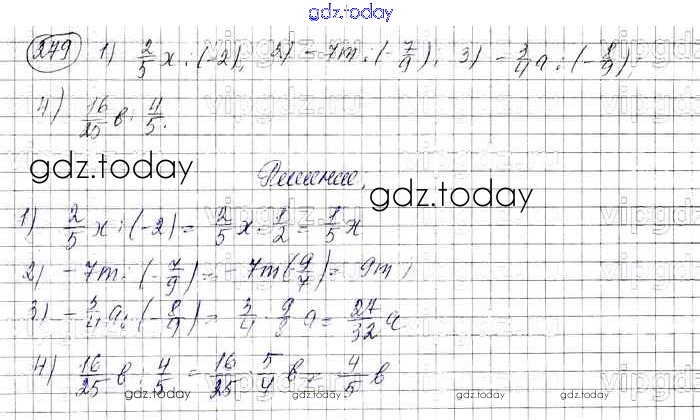 gdz.today
279 1) 2/5 x : (-2), 2) -7m : (-7/9); 3) -3/4 a : (-8/9);
4) 16/25 в : 4/5.
gdz.today
Решение,
gdz.today
1) 2/5 x : (-2) = 2/5 x · 1/2 = 1/5 x
2) -7m : (-7/9) = -7m (-9/7) = 9m;
3) -3/4 a : (-8/9) = 3/4 · 9/8 a = 27/32 a
4) 16/25 в : 4/5 = 16/25 · 5/4 в = 4/5 в
gdz.today gdz.today gdz.today gdz.today